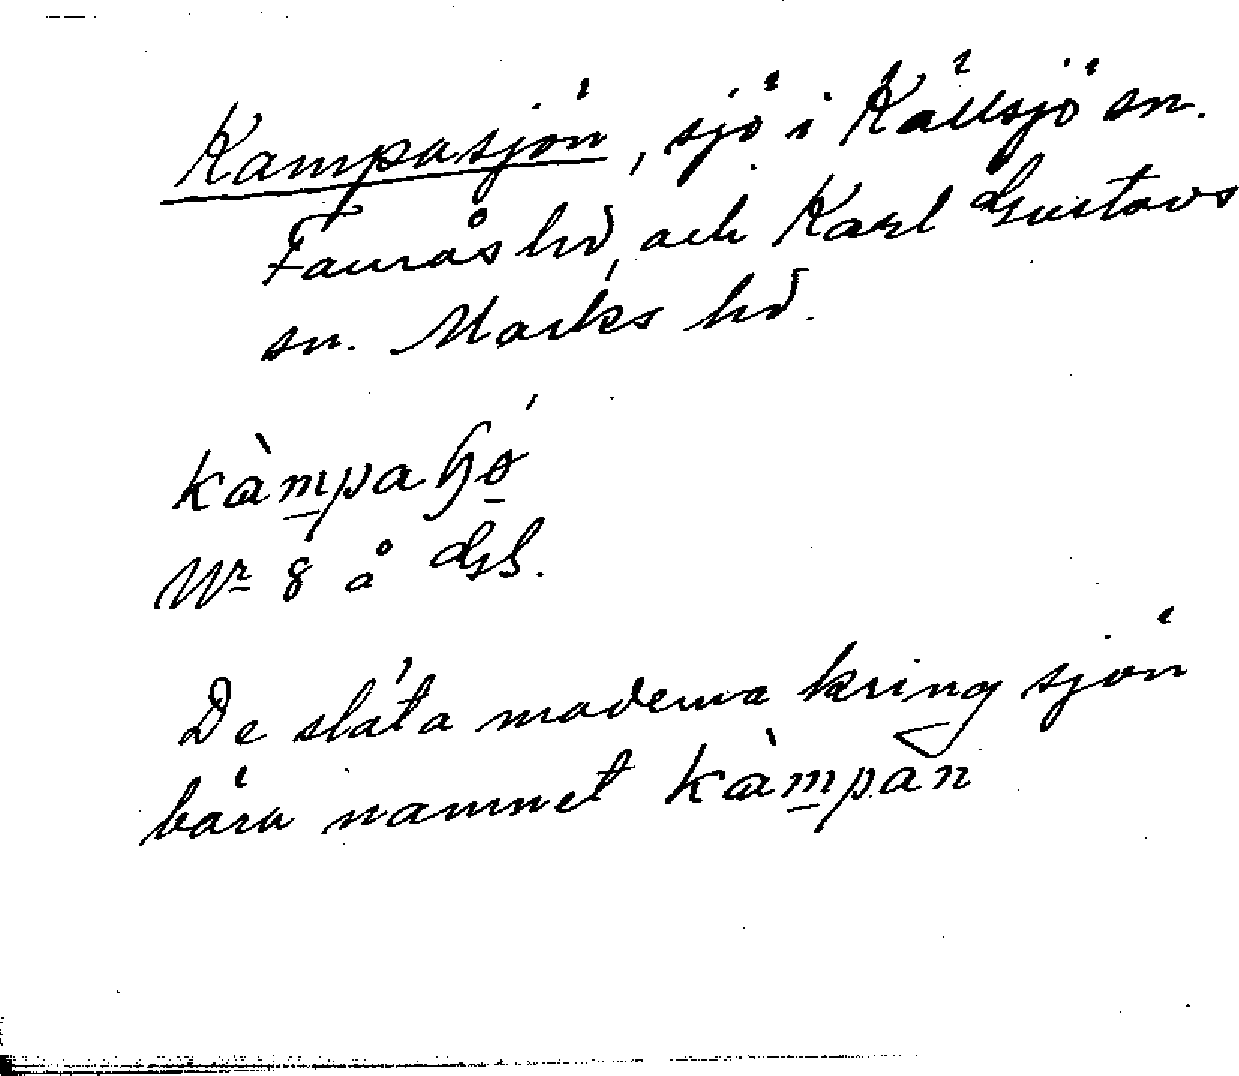 Kampasjön, sjö i Källsjö sn.
Faurås hd, och Karl Gustavs
sn. Marks hd.
kàmpa ɧø
Nr 8 å GS.
De släta moderna kring sjön
bära namnet kàmpan